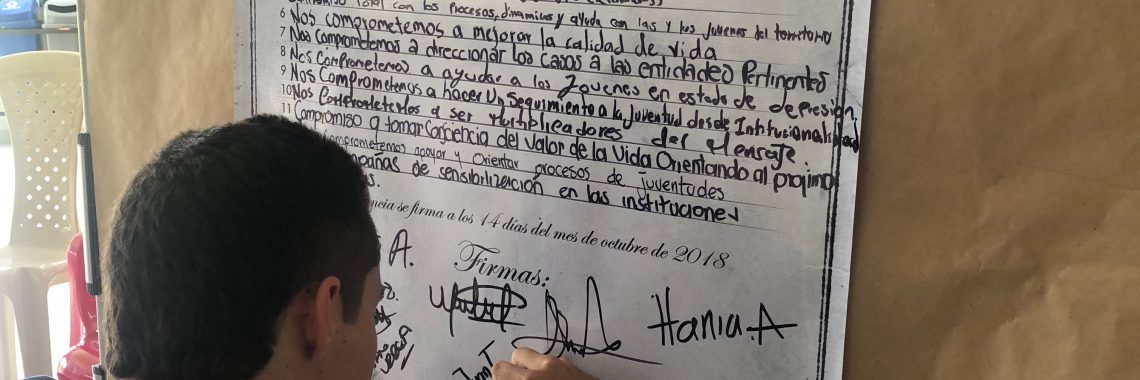 Total con los procesos, dinamicas y ayuda con las y los jovenes del territorio
6 Nos comprometemos a mejorar la calidad de vida
7 Nos comprometemos a direccionar los casos a las entidades Pertinentes
8 Nos comprometemos a ayudar a los Jovenes en estado de depresion,
9 Nos comprometemos a hacer un seguimiento a la juventud desde Intitucionalidad
10 Nos comprometemos a ser multiplicadores del mensaje.
11 Compromiso a tomar conciencia del valor de la Vida Orientando al projimo
comprometemos apoyar y orientar procesos de juventudes
pañas de sensibilización en las instituciones
s.
ncia se firma a los 14 días del mes de octubre de 2018
A. Firmas:
Hania.A